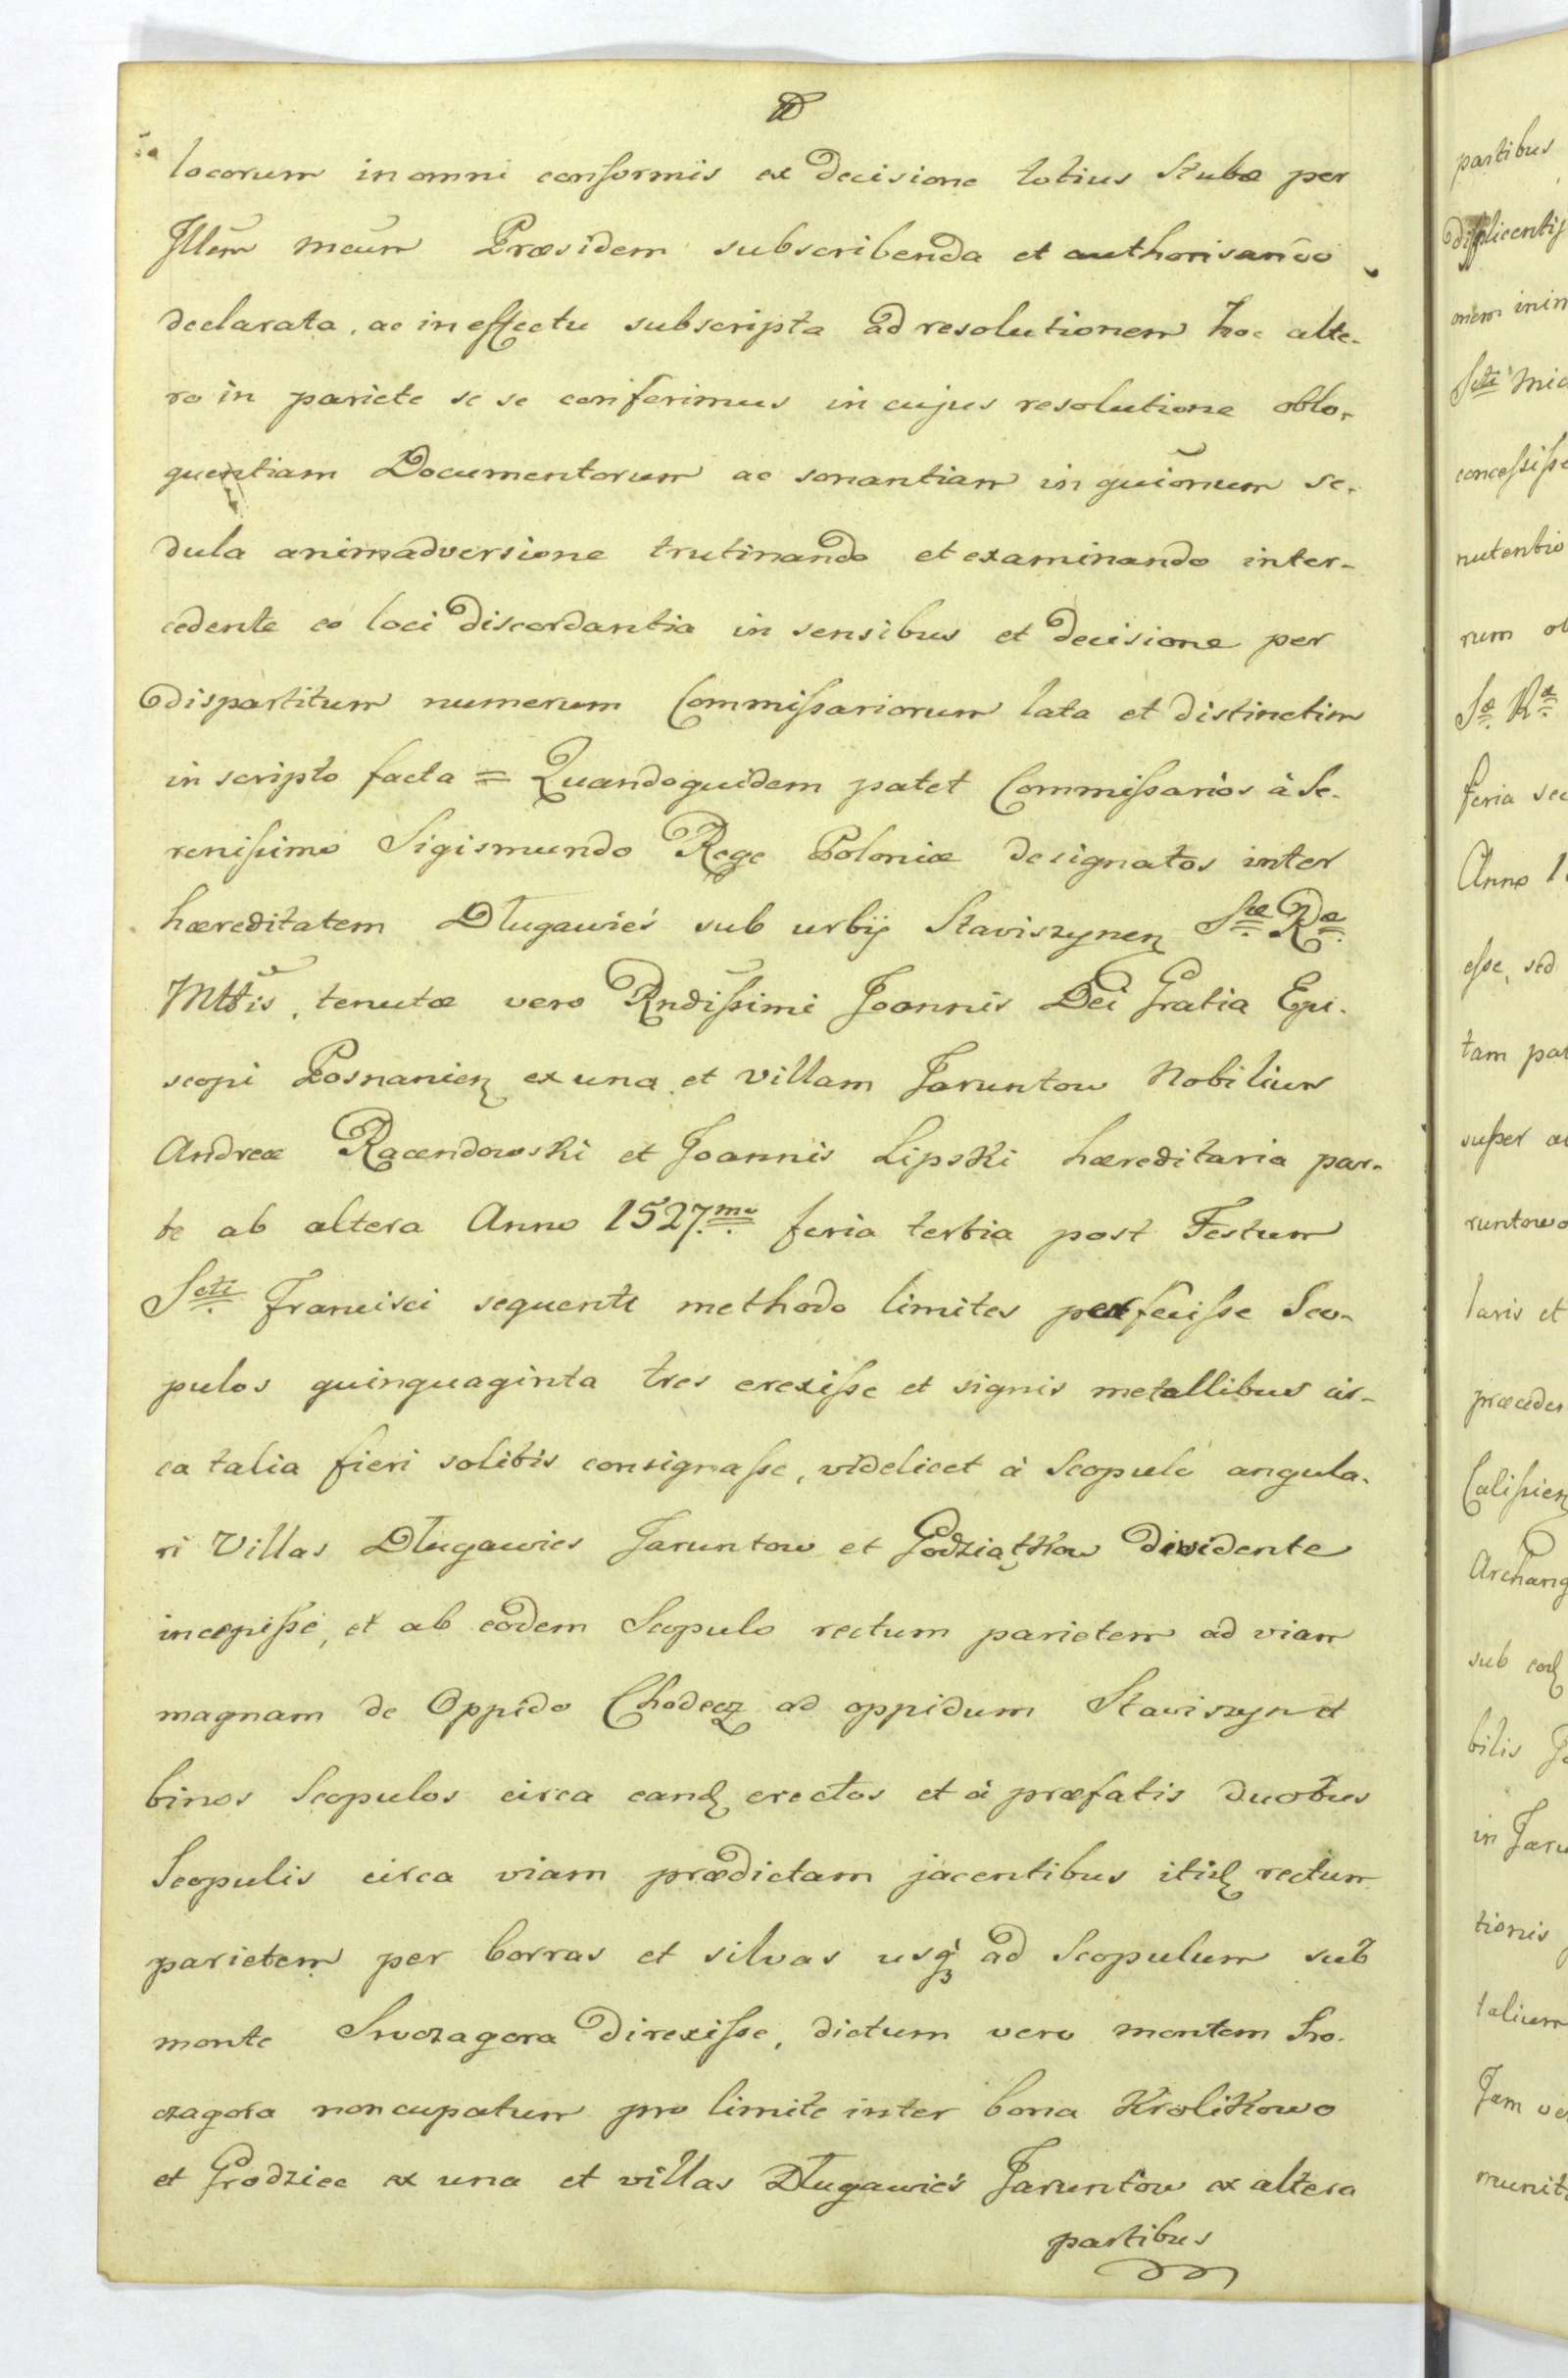 locorum in omni conformis ex decisione totius Stubæ per
Jllem meum Præsidem subscribenda et authorisando
declarata, ac in effectu subscripta ad resolutionem hoc alte-
ro in pariete se se conferimus in cujus resolutione oblo-
quentiam Documentorum ac sonantiam in quionum se-
dula animadversione trutinando et examinando inter-
cedente eo loci discordantia in sensibus et decisione per
dispartitum numerum Commissariorum lata et distinctim
in scripto facta = Quandoquidem patet Commissarios à Se-
renissimo Sigismundo Rege Poloniæ designatos inter
hæreditatem Długawieś sub urbij Staviszynen Sæ Ræ
Mttis, tenutæ vero Rndissimi Joannis Dei Gratia Epi-
scopi Posnanien ex una et villam Jaruntow Nobilium
Andreæ Racendowski et Joannis Lipski hæreditaria par-
te ab altera Anno 1527mo feria tertia post Festum
Scti Francisci sequenti methodo limites perfecisse Sco-
pulos quinquaginta tres erexisse et signis metallibus cir-
ca talia fieri solitis consignasse, videlicet à Scopulo angula-
ri Villas Długawies Jaruntow et Godziątkow dividente
incepisse, et ab eodem Scopulo rectum parietem ad viam
magnam de Oppido Chodecz ad oppidum Staviszyn et
binos Scopulos circa eand erectos et à præfatis duobus
Scopulis circa viam prædictam jacentibus itid rectum
parietem per borras et silvas usq ad Scopulum sub
monte Sroczagora direxisse, dictum vero montem Sro-
czagora noncupatum pro limite inter bona Krolikowo
et Grodziec ex una et villas Długawieś Jaruntow ex altera
partibus
partibus
displicentis
Scti Mic
concessisse
nutentio
rum
Sæ Ræ
feria sec
Anno 1
esse, sed
tam par
super
runtowo
laris et
præceden
Calissien
Archang
sub eod
bilis Jo
in Jaru
tionis
talium
Jam ve
munit